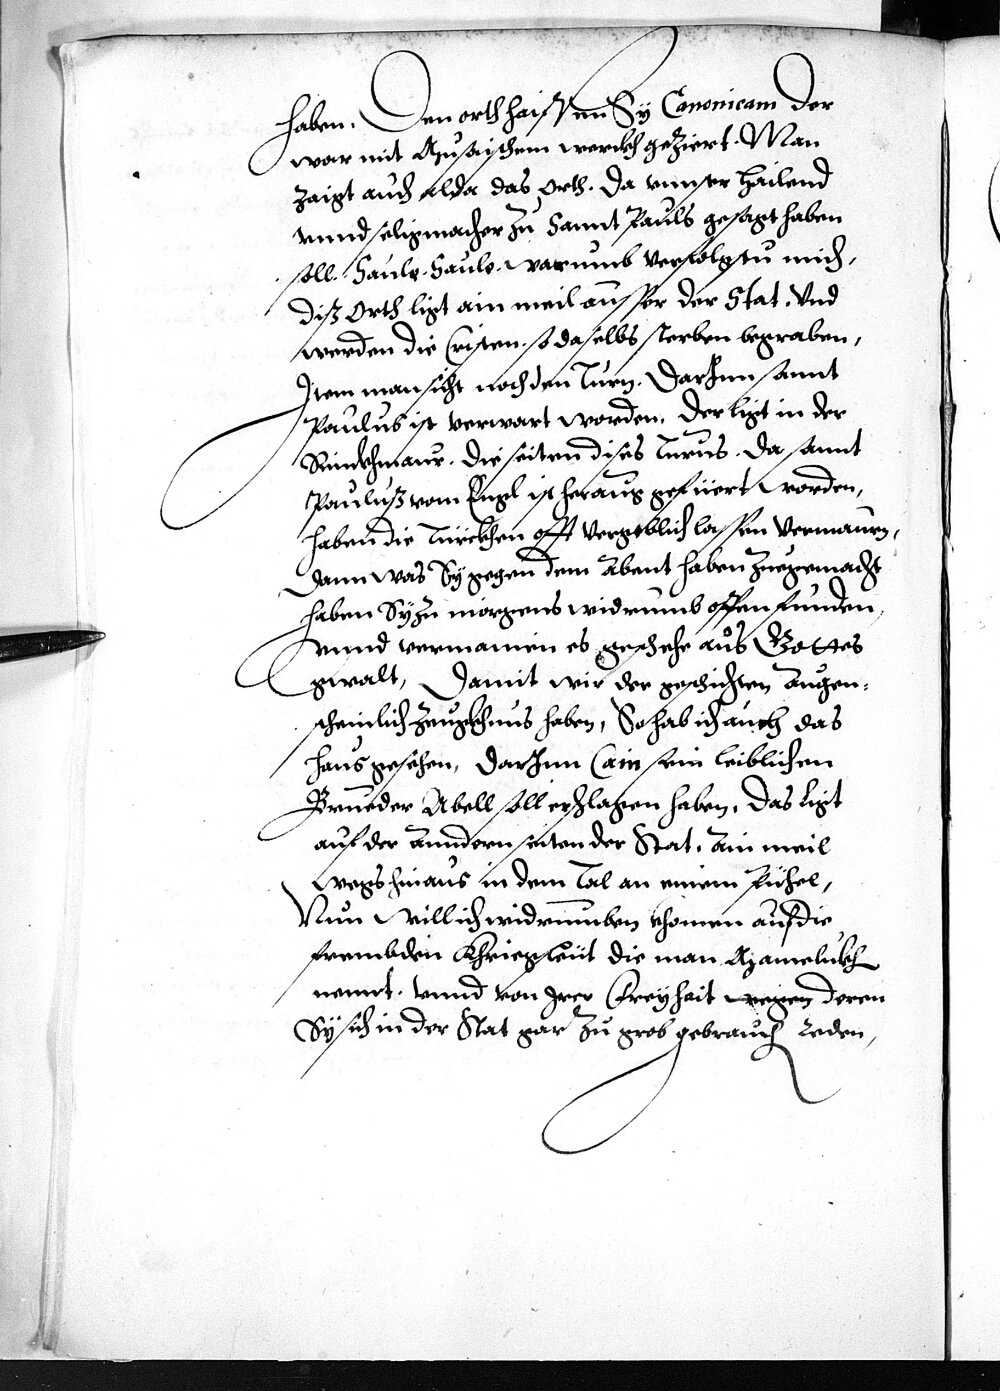 haben. Den orth haissen Sy Canonicam der
war mit Musaischem werckh geziert. Man
zaigt auch alda das orth. Da vnnser hailend
vnnd seligmacher zu Sannt Pauls gesagt haben
soll. Saule. Saule. warumb veruolgstu mich,
Diß orth ligt ain meil ausser der Stat. Vnd
werden die Cristen so daselbs sterben begraben,
Item man sicht noch den Turn. DarInn sannt
Paulus ist verwart worden. Der ligt in der
Rinckhmaur. Die seiten dises Turns. Da sannt
Pauluß vom Engl ist heraus gefüert worden,
haben die Türckhen offt vergeblich lassen vermauren,
Dann was Sy gegen dem Abent haben zuegemacht
haben Sy zu morgens widrumb offen funden,
vnnd vermainen es geschehe aus Gottes
gwalt, Damit wir der geschichten augen-
scheinlich zeugkhnus haben, So hab ich auch das
haus gesehen, DarInn Cain sein leiblichen
Brueder Abell soll erschlagen haben. Das ligt
auf der anndern seiten der Stat. Ain meil
wegs hinaus in dem Tal an einem Pühel,
Nun will ich widrumben khomen auf die
frembden Khriegsleüt die man Mamelukh
nennt. Vnnd von Irer Freyhait wegen deren
Sy sich in der Stat gar zu grob gebrauch Reden,